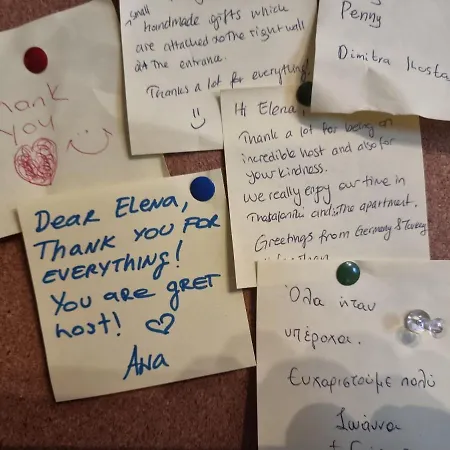 Thank
you
small
handmade gifts which
are attached to the right wall
at the entrance.
Thanks a lot for everything!
Penny
Dimitra Kosta
Hi Elena,
Thank a lot for being an
incredible host and also for
your kindness.
We really enjoy our time in
and the apartment.
Greetings from Germany & Turkey
DEAR ELENA,
THANK YOU FOR
EVERYTHING!
YOU ARE GRET
host!
ANA
Όλα ήταν
υπέροχα.
Ευχαριστούμε πολύ
Ιωάννα